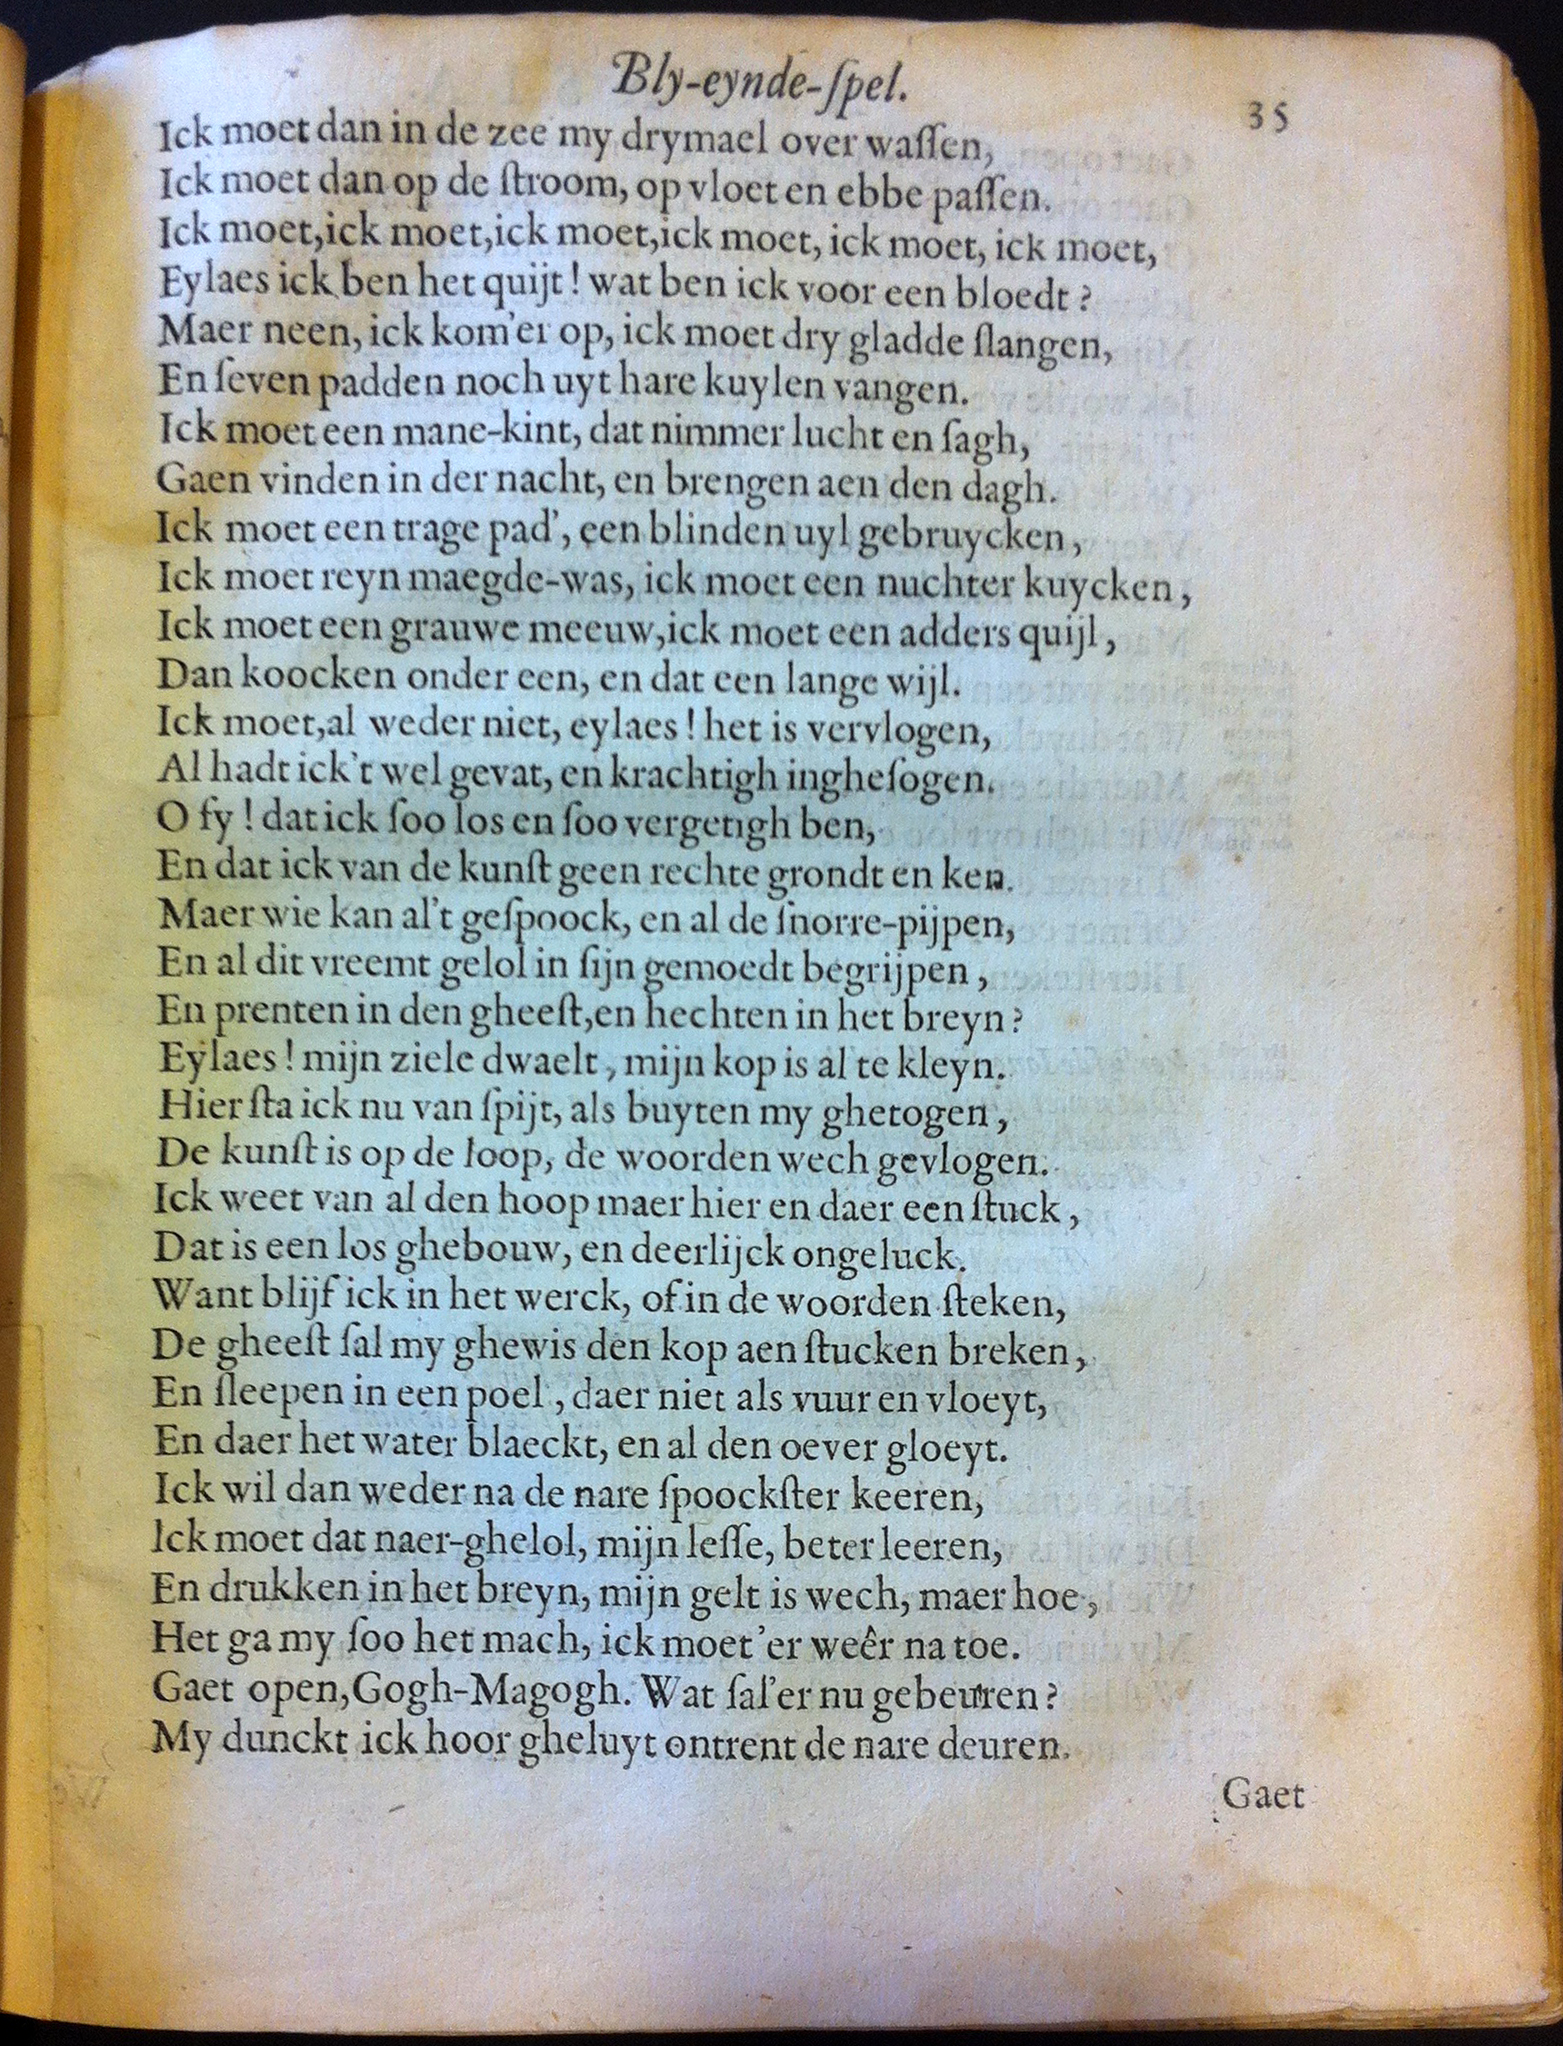 Bly-eynde-ſpel.
35
Ick moet dan in de zee my drymael over waſſen,
Ick moet dan op de ſtroom, op vloet en ebbe paſſen.
Ick moet,ick moet,ick moet,ick moet, ick moet, ick moet,
Eylaes ick ben het quijt! wat ben ick voor een bloedt?
Maer neen, ick kom'er op, ick moet dry gladde ſlangen,
En ſeven padden noch uyt hare kuylen vangen.
Ick moet een mane-kint, dat nimmer lucht en ſagh,
Gaen vinden in der nacht, en brengen aen den dagh.
Ick moet een trage pad', een blinden uyl gebruycken,
Ick moet reyn maegde-was, ick moet een nuchter kuycken,
Ick moet een grauwe meeuw,ick moet een adders quijl,
Dan koocken onder een, en dat een lange wijl.
Ick moet,al weder niet, eylaes! het is vervlogen,
Al hadt ick't wel gevat, en krachtigh ingheſogen.
O fy! dat ick ſoo los en ſoo vergetigh ben,
En dat ick van de kunſt geen rechte grondt en ken.
Maer wie kan al't geſpoock, en al de ſnorre-pijpen,
En al dit vreemt gelol in ſijn gemoedt begrijpen,
En prenten in den gheeſt,en hechten in het breyn?
Eylaes! mijn ziele dwaelt, mijn kop is al te kleyn.
Hier ſta ick nu van ſpijt, als buyten my ghetogen,
De kunſt is op de loop, de woorden wech gevlogen.
Ick weet van al den hoop maer hier en daer een ſtuck,
Dat is een los ghebouw, en deerlijck ongeluck.
Want blijf ick in het werck, of in de woorden ſteken,
De gheeſt ſal my ghewis den kop aen ſtucken breken,
En ſleepen in een poel, daer niet als vuur en vloeyt,
En daer het water blaeckt, en al den oever gloeyt.
Ick wil dan weder na de nare ſpoockſter keeren,
Ick moet dat naer-ghelol, mijn leſſe, beter leeren,
En drukken in het breyn, mijn gelt is wech, maer hoe,
Het ga my ſoo het mach, ick moet'er weêr na toe.
Gaet open,Gogh-Magogh. Wat ſal'er nu gebeuren?
My dunckt ick hoor gheluyt ontrent de nare deuren.
Gaet